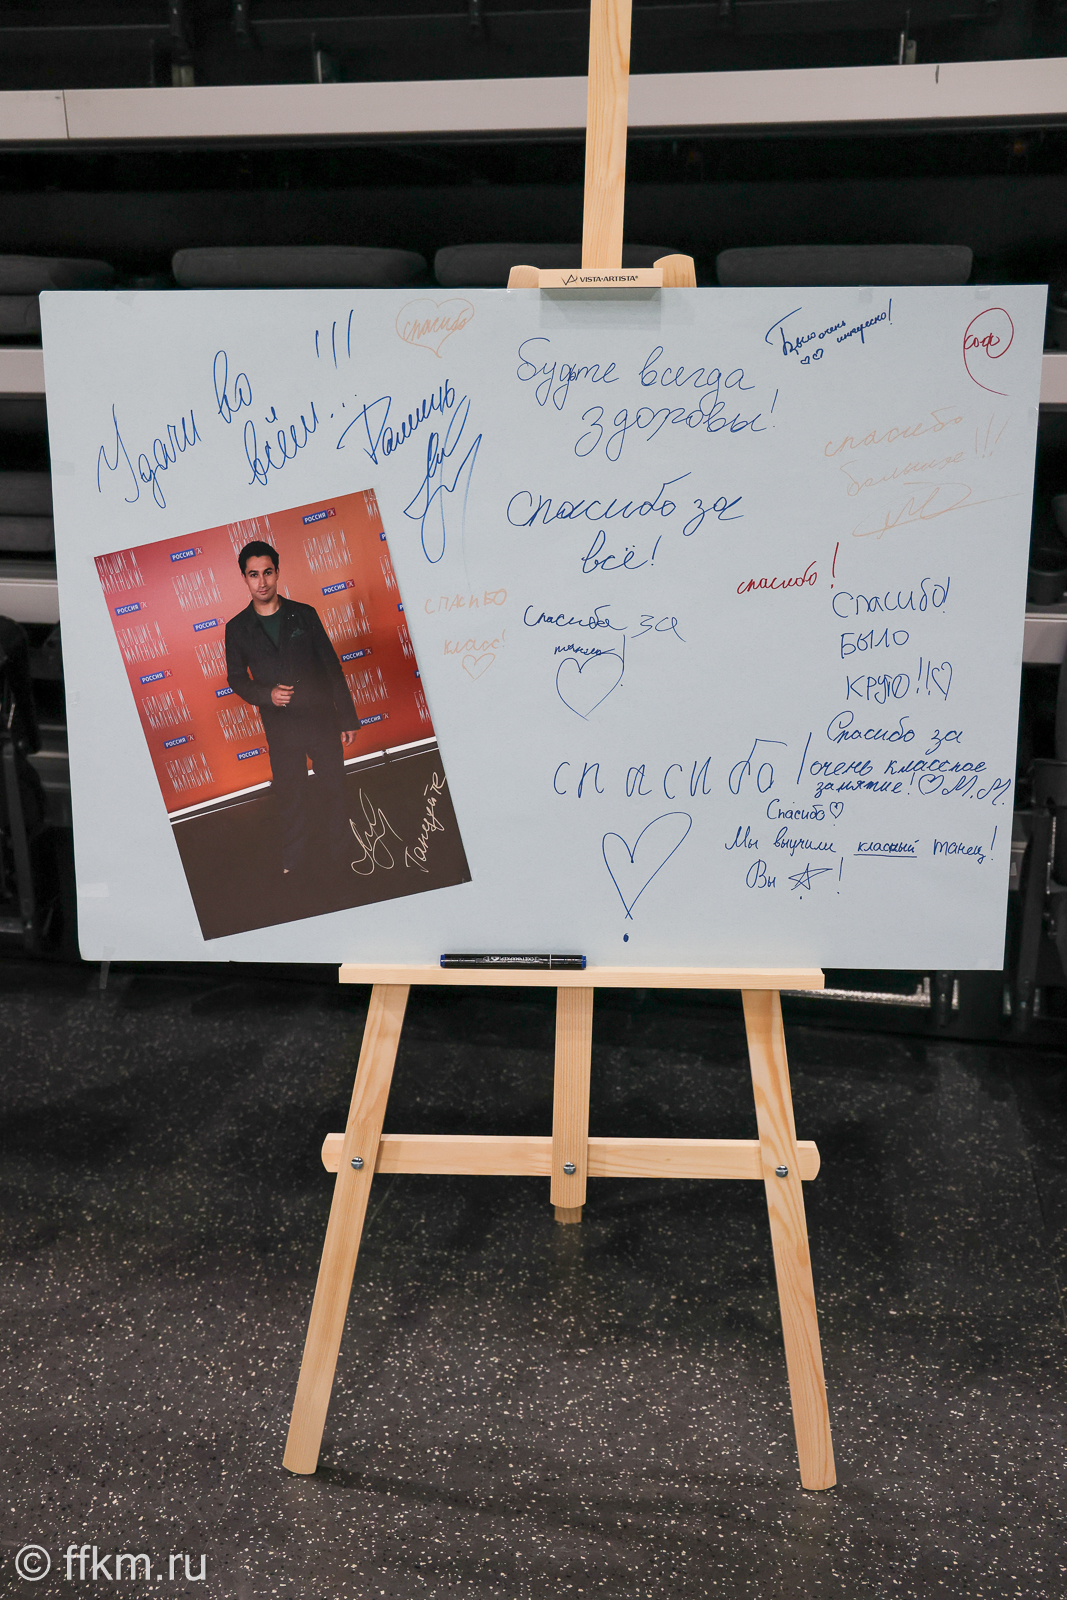 VISTA-ARTISTA®
Удачи во
всём... !!!
спасибо
Будьте всегда
здоровы!
Было очень
интересно!
софа
спасибо
большое!!!
Спасибо за
всё!
СПАСИБО
класс!
Спасибо за
танец!
спасибо!
Спасибо!
БЫЛО
КРУТО!!♡
спасибо!
Спасибо за
очень классное
занятие!♡М.М.
Спасибо♡
Мы выучили класный танец!
Вы ☆!
РОССИЯ К
БОЛЬШИЕ И
МАЛЕНЬКИЕ
Танцуйте
© ffkm.ru